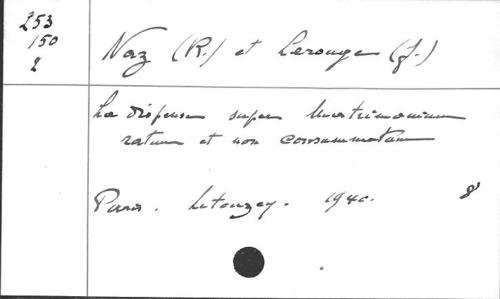 253
150
2
Naz (R.) et Lerouge (J.)
La dispense super Matrimonium
ratum et non consummatum
Paris. Letouzey. 1940. 8